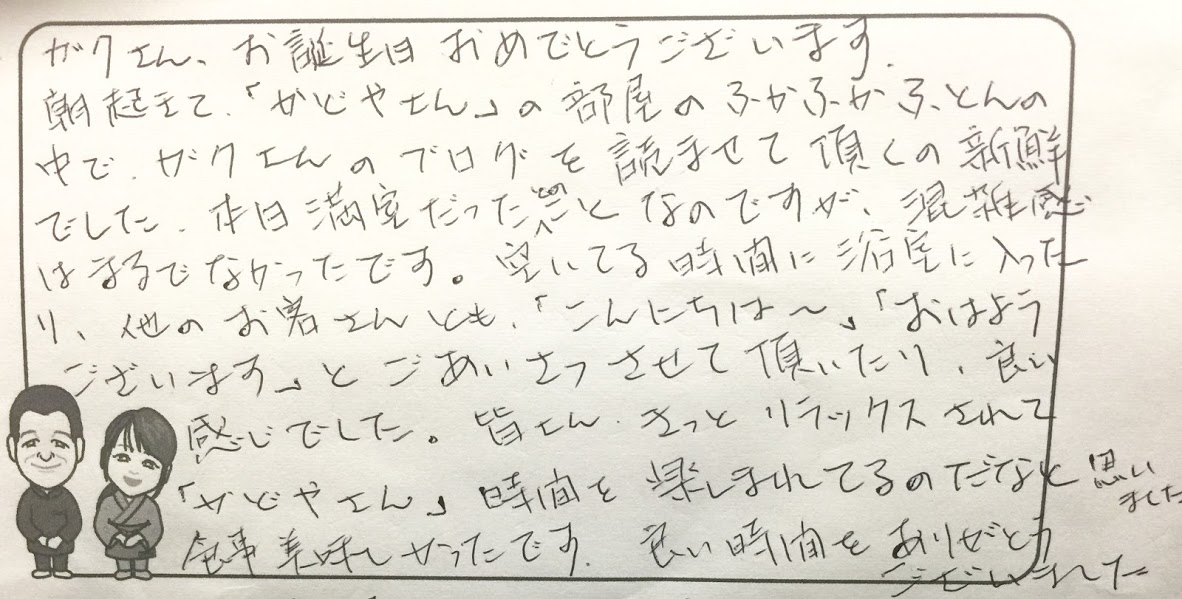 ガクさん、お誕生日おめでとうございます.
朝起きて、「かどやさん」の部屋のふかふかふとんの
中で、ガクさんのブログを読ませて頂くの新鮮
でした、本日満室だったとのことなのですが、混雑感
はまるでなかったです。空いてる時間に浴室に入った
り、他のお客さんとも、「こんにちは～」「おはよう
ございます」とごあいさつさせて頂いたり、良い
感じでした。皆さん、きっとリラックスされて
「かどやさん」時間を楽しまれてるのだなと思い
ました
食事美味しかったです. 良い時間をありがとう
ございました